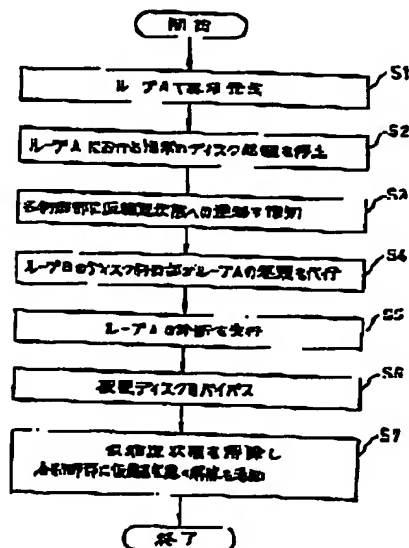 開始
S1
ループAで異常発生
S2
ループAにおける通常のディスク処理を停止
S3
各制御部に仮縮退状態への遷移を通知
S4
ループBのディスク制御部がループAの処理を代行
S5
ループAの診断を実行
S6
被疑ディスクをバイパス
S7
仮縮退状態を解除し
各制御部に仮縮退状態の解除を通知
終了